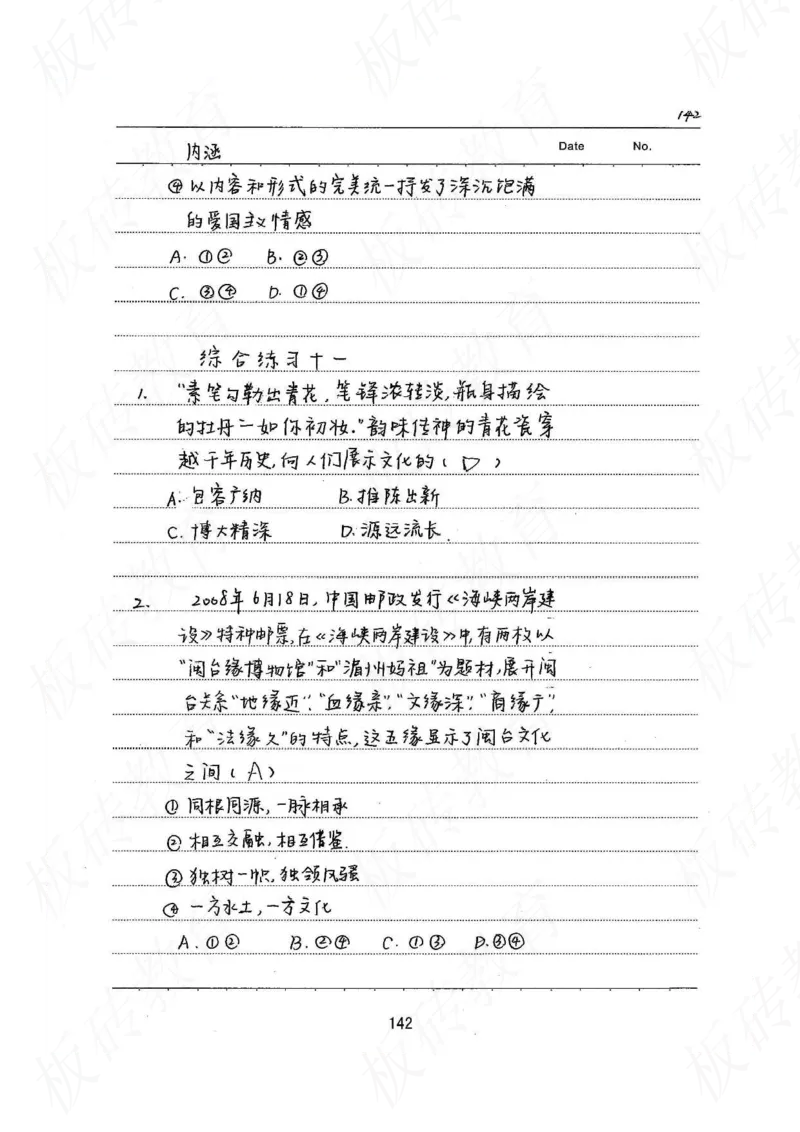 142
Date No.
内涵
④以内容和形式的完美统一抒发了深沉饱满
的爱国主义情感
A. ①② B. ②③
C. ③④ D. ①④
综合练习十一
1. "素笔勾勒出青花,笔锋浓转淡,瓶身描绘
的牡丹一如你初妆."韵味传神的青花瓷穿
越千年历史,向人们展示文化的( D )
A. 包容广纳 B. 推陈出新
C. 博大精深 D. 源远流长
2. 2008年6月18日,中国邮政发行《海峡两岸建
设》特种邮票,在《海峡两岸建设》中,有两枚以
"闽台缘博物馆"和"湄州妈祖"为题材,展开闽
台关系"地缘近"、"血缘亲"、"文缘深"、"商缘广",
和"法缘久"的特点,这五缘显示了闽台文化
之间( A )
① 同根同源,一脉相承
② 相互交融,相互借鉴
③ 独树一帜,独领风骚
④ 一方水土,一方文化
A. ①② B. ②④ C. ①③ D. ③④
142
板砖教育